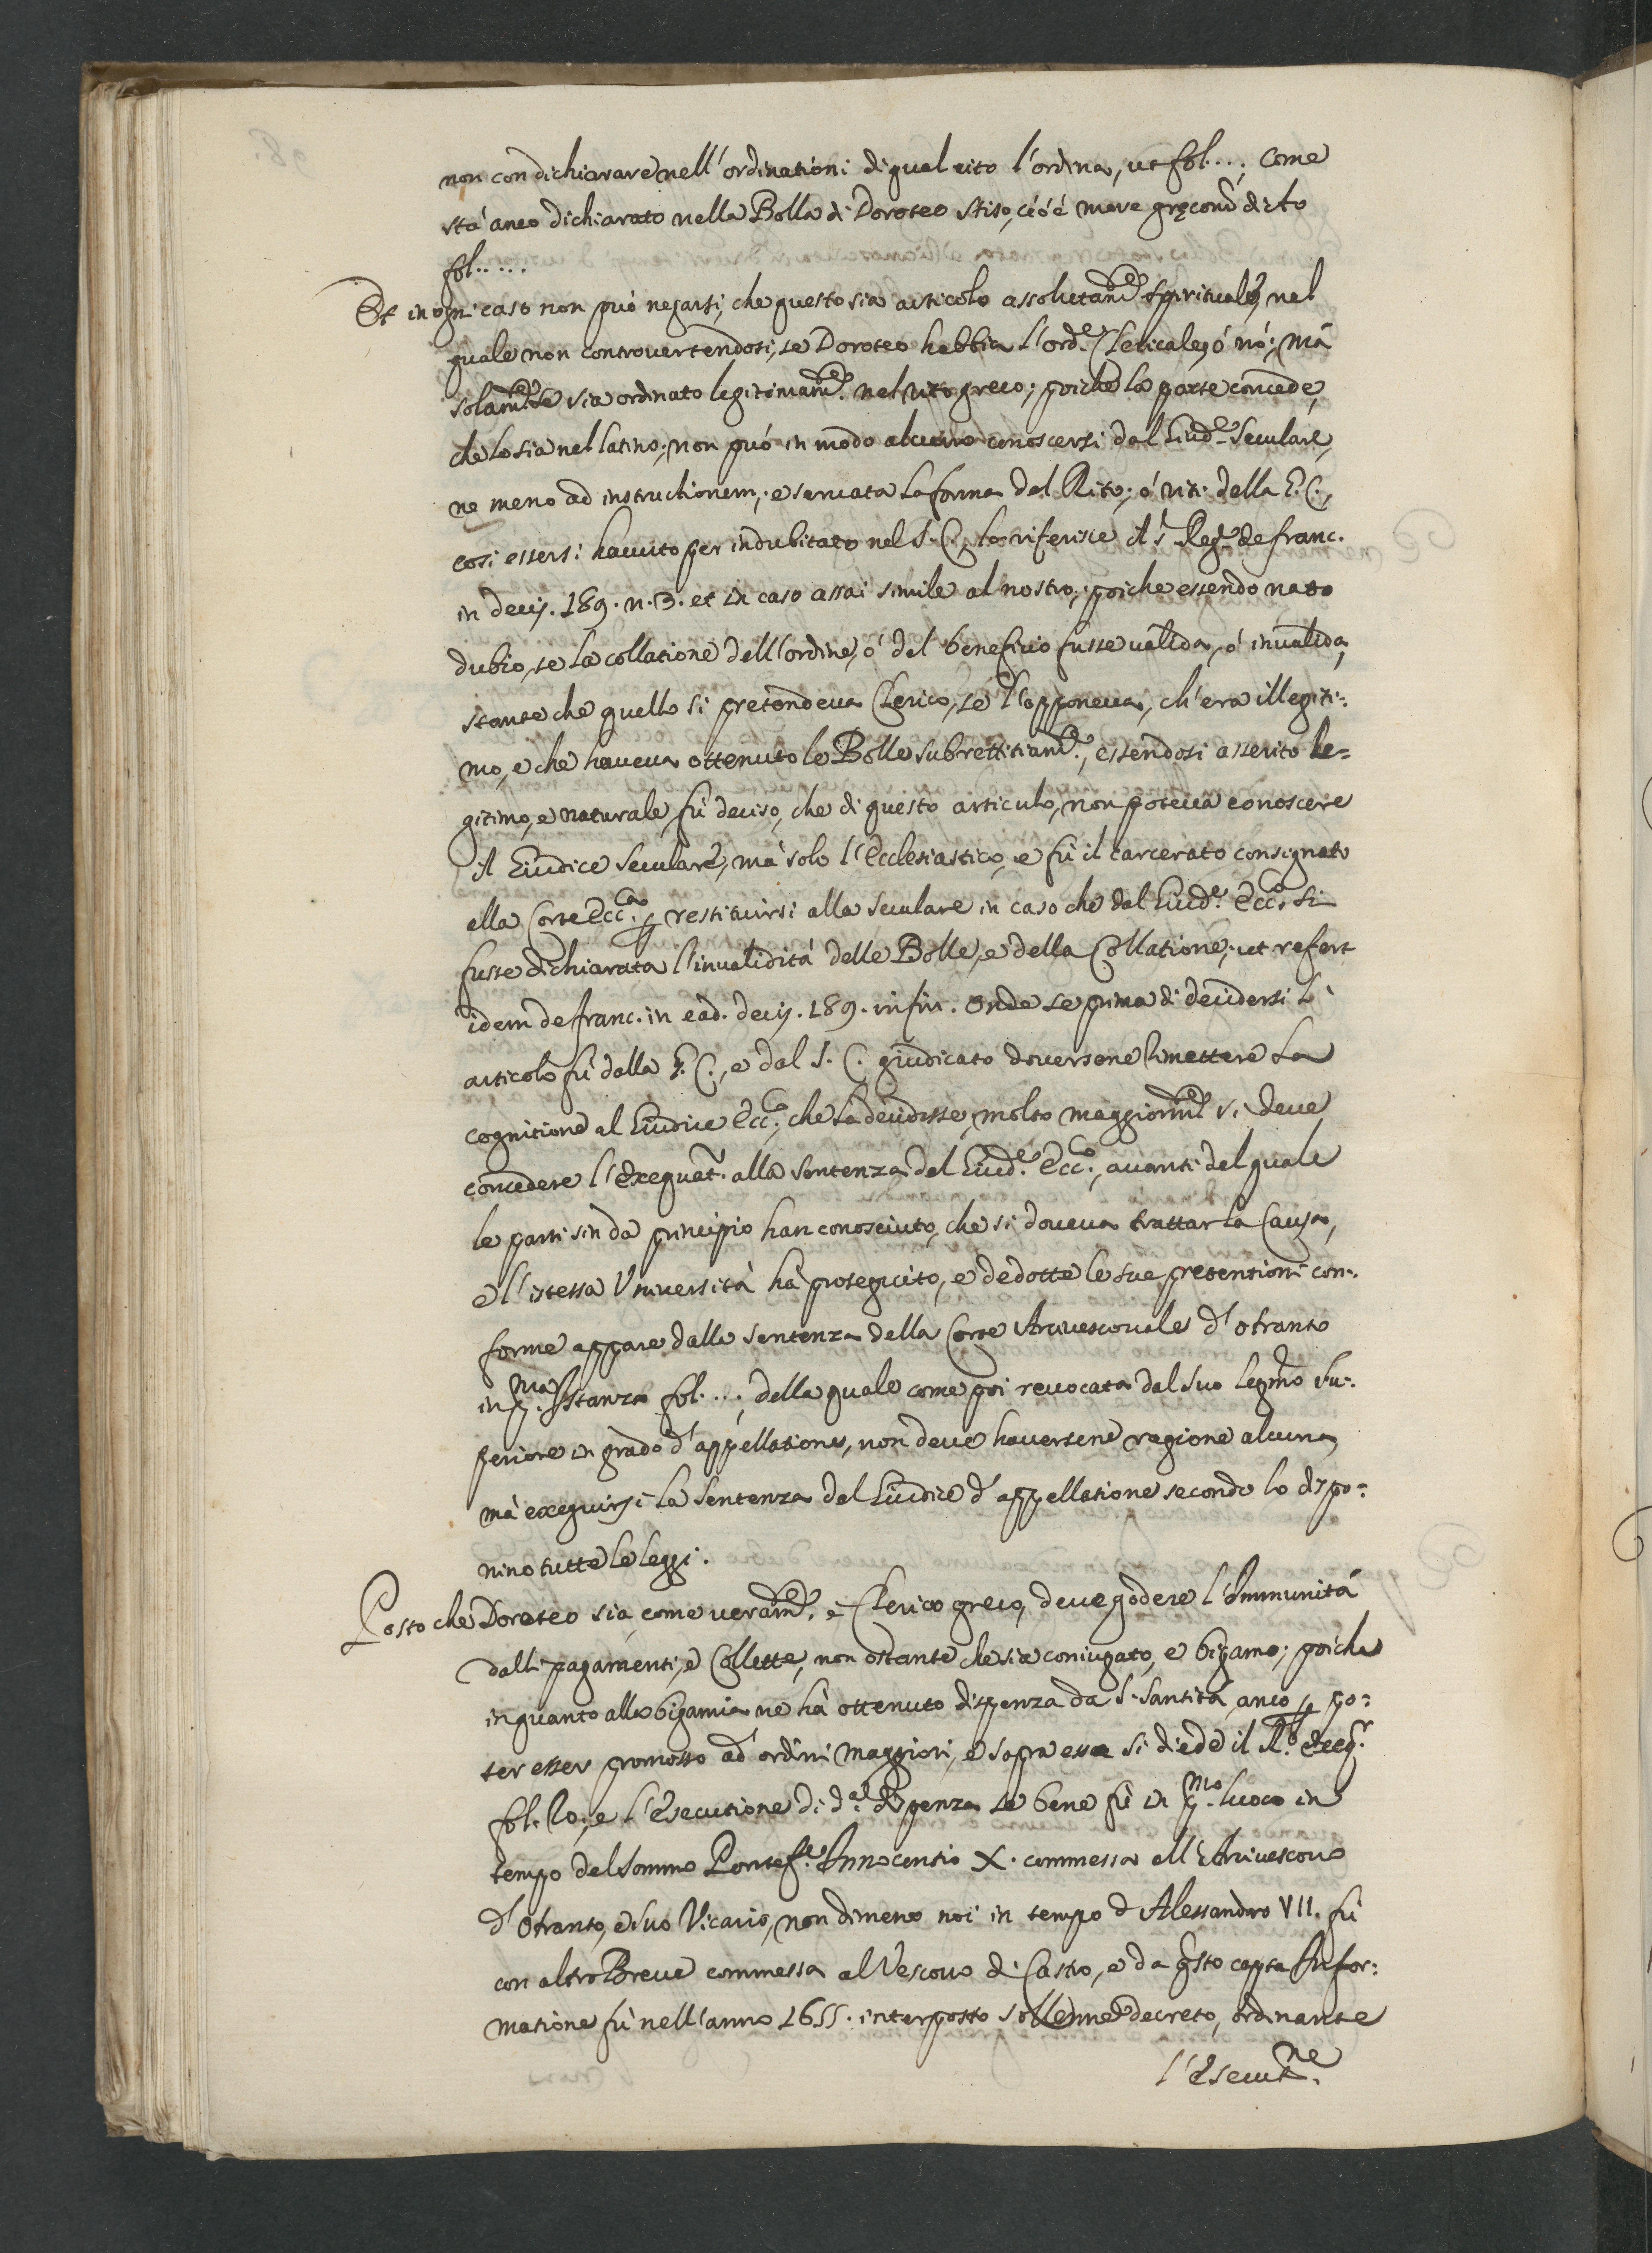 non con dichiarare nell'ordinationi di qual rito l'ordina, ut fol....; Come
stà anco dichiarato nella Bolla di Doroteo Stiso, cioè more gręcorũ dicto
fol.....
Et in ogni caso non può negarsi, che questo sia articolo assolutam.te spirituale, nel
quale non controvertendosi, se Doroteo habbia l'ord.e Clericale, ó nó; mà
solam.te se sia ordinato legitimam.te nel rito greco; poiche la parte concede,
che lo sia nel latino; non può in modo alcuno conoscersi dal Giud.e Seculare,
ne meno ad instructionem, e servata la forma del Rito; ó riti della G. C.,
cosi essersi havuto per indubitato nel S. C., lo riferisce il S.r Reg.te de franc.
in decis. 189. n. 3. et in caso assai simile al nostro; poiche essendo nato
dubio, se la collatione dell'ordine, ó del beneficio fusse valida, ó invalida,
stante che quello si pretendeva Clerico, se l'opponeva, ch'era illegiti:
mo, e che haveva ottenuto le Bolle subrettitiam.te, essendosi asserito le=
gitimo, e naturale, fù deciso, che di questo articulo, non poteva conoscere
il Giudice Seculare, mà solo l'Ecclesiastico, e fù il carcerato consignato
alla Corte Ecc.ca p restituirsi alla seculare in caso che dal Giud.e Ecc.co si
fusse dichiarata l'invalidità delle Bolle, e della Collatione; ut refert
idem de franc. in ead. decis. 189. in fin. Onde se prima di decidersi l'
articolo fù dalla G. C., e dal S. C. giudicato doversene rimettere la
cognitione al Giudice Ecc.co, che la decidesse, molto maggiorm.te si deve
concedere l'Exequat.r alla sentenza del Giud.e Ecc.co, avanti del quale
le parti sin da principio han conosciuto, che si doveva trattar la Causa,
e l'istessa Università hà proseguito, e dedotte le sue pretentioni con:
forme appare dalla sentenza della Corte Arcivescovale d'Otranto
in p.ma Istanza fol....; della quale come poi revocata dal suo legmo Su:
periore in grado d'appellatione, non deve haversene ragione alcuna,
mà exequirsi la sentenza del Giudice d'appellatione secondo lo dispo:
nino tutte le leggi.
Posto che Doroteo sia, come veram.te è Clerico greco, deve godere l'Immunità
dalli pagamenti, e Collette, non ostante che sia coniugato, e bigamo; poiche
in quanto alla bigamia ne hà ottenuto dispenza da S. Santità, anco p po:
ter esser promosso ad ordini maggiori, e sopra essa si diede il R.o Exeq.r
fol. 20., e l'Esecutione di d.a dispenza se bene fù in p.mo luoco in
tempo del Sommo Pontef.e Innocentio X. commessa all'Arcivescovo
d'Otranto, e suo Vicario, non dimeno poi in tempo d'Alessandro VII. fù
con altro Breve commessa al Vescovo di Castro, e da q.sto capta Infor:
matione fù nell'anno 1655. interposto sollenne decreto, ordinante
l'Esecut.ne